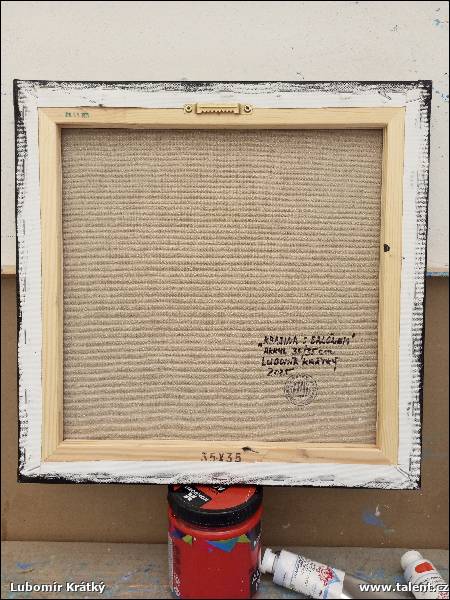 „KRAJINA S BALÓNEM"
AKRYL 35/35 cm
LUBOMÍR KRÁTKÝ
2025
35X35
Lubomír Krátký
www.talent.cz